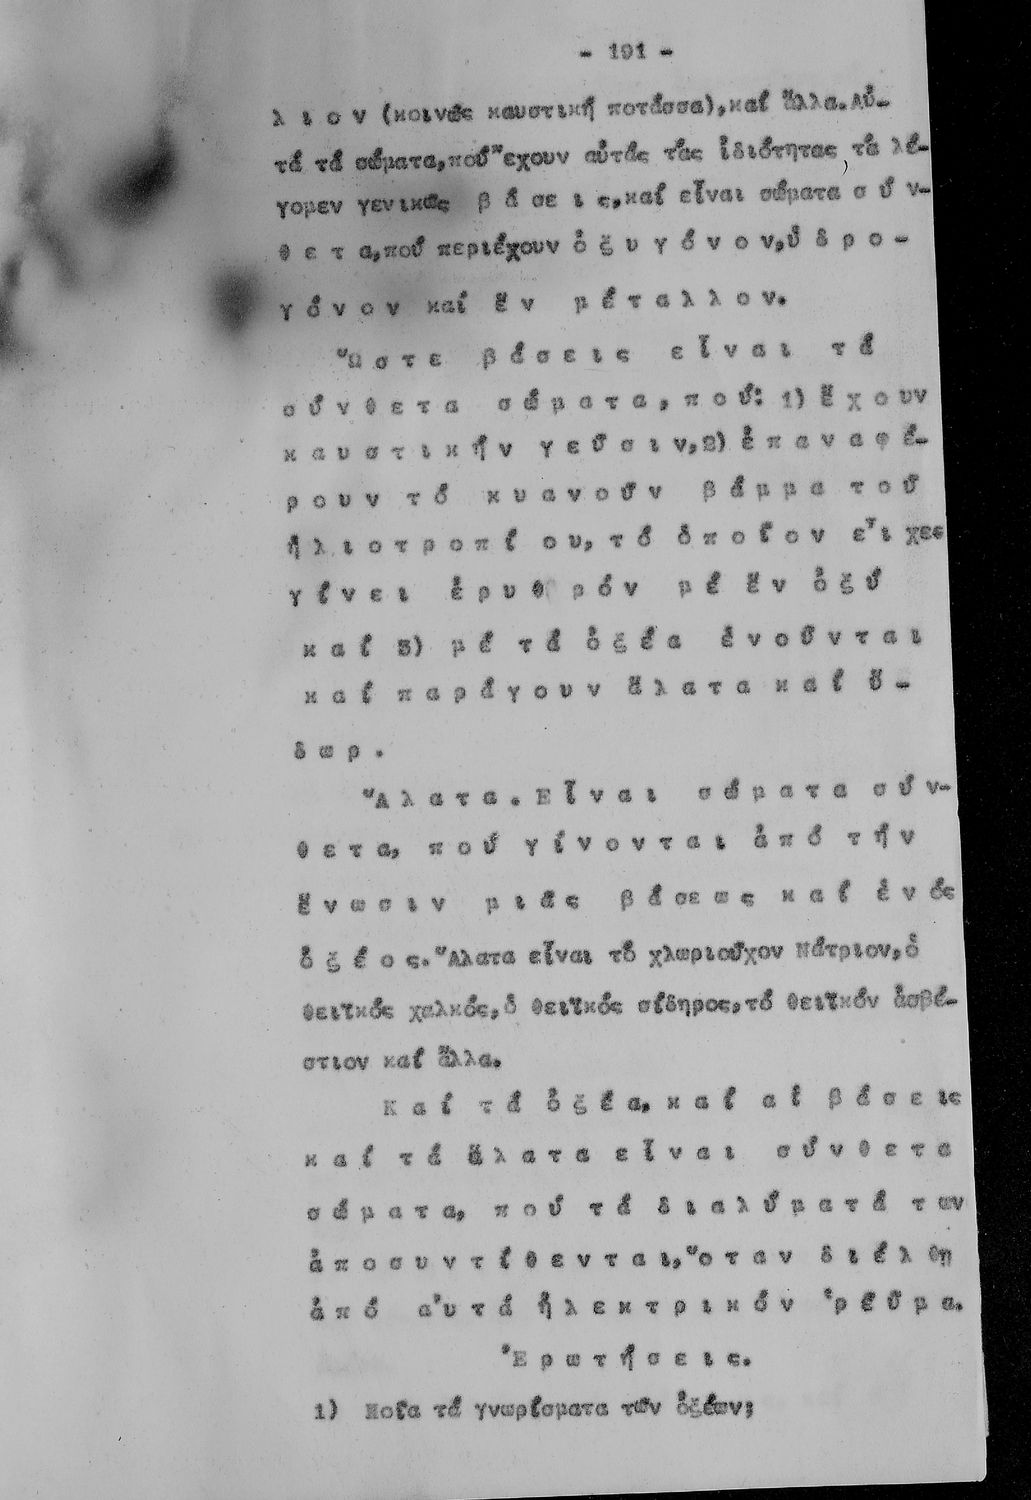 - 191 -
λ ι ο ν (κοινῶς καυστική ποτάσσα),καί ἄλλα.Αὐ-
τά τά σώματα,πού ἔχουν αὐτάς τάς ἰδιότητας, τά λέ-
γομεν γενικῶς β ά σε ι ς,καί εἶναι σώματα σ ύ ν-
θ ε τ α,πού περιέχουν ὀ ξ υ γ ό ν ο ν,ὑ δ ρ ο -
γ ό ν ο ν καί ἕ ν μ έ τ α λ λ ο ν.
Ὥ σ τ ε β ά σ ε ι ς ε ἶ ν α ι τ ά
σ ύ ν θ ε τ α σ ώ μ α τ α , π ο ύ: 1) ἔ χ ο υν
κ α υ σ τ ι κ ή ν γ ε ῦ σ ι ν,2) ἐ π α ν α φ έ-
ρ ο υ ν τ ό κ υ α ν ο ῦ ν β ά μ μ α τ ο ῦ
ἡ λ ι ο τ ρ ο π ί ου, τ ό ὁ π ο ῖ ο ν ε ἶ χες
γ ί ν ε ι ἐ ρ υ θ ρ ό ν μ έ ἕ ν ὀ ξ ύ
κ α ί 3) μ έ τ ά ὀ ξ έ α ἑ ν ο ῦ ν τ α ι
κ α ί π α ρ ά γ ο υ ν ἅ λ α τ α κ α ί ὕ -
δ ω ρ .
Ἅ λ α τ α . Ε ἶ ν α ι σ ώ μ α τ α σ ύ ν-
θ ε τ α, π ο ύ γ ί ν ο ν τ α ι ἀ π ό τ ή ν
ἕ ν ω σ ι ν μ ι ᾶ ς β ά σε ω ς κ α ί ἑ ν ός
ὀ ξ έ ο ς.Ἅλατα εἶναι τό χλωριοῦχον Νάτριον,ὁ
θειϊκός χαλκός,ὁ θειϊκός σίδηρος,τό θειϊκόν ἀσβέ-
στιον καί ἄλλα.
Κ α ί τ ά ὀ ξ έ α, κ α ί α ἱ β ά σ ε ις
κ α ί τ ά ἅ λ α τ α ε ἶ ν α ι σ ύ ν θ ε τ α
σ ώ μ α τ α, π ο ύ τ ά δ ι α λ ύ μ α τ ά τ ων
ἀ π ο σ υ ν τ ί θ ε ν τ α ι,ὅ τ α ν δ ι έ λ θῃ
ἀ π ό α ὐ τ ά ἠ λ ε κ τ ρ ι κ ό ν ῥ ε ῦ μ α.
Ἐ ρ ω τ ή σ ε ι ς.
1) Ποῖα τά γνωρίσματα τῶν ὀξέων;